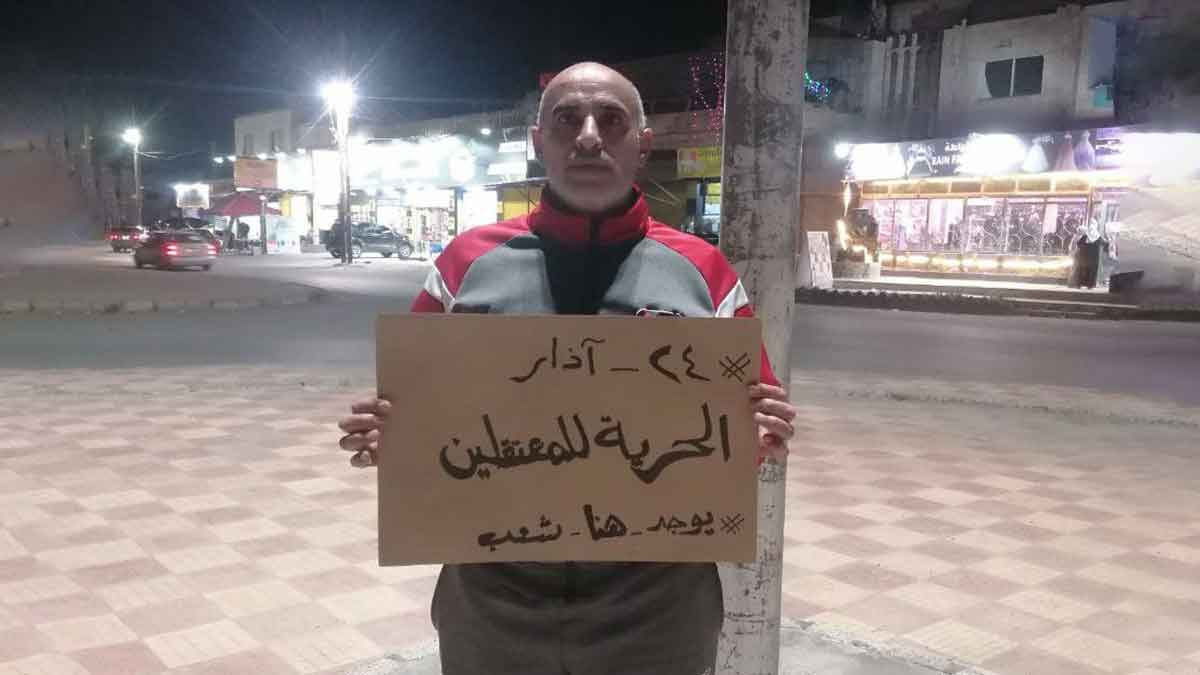 #٢٤_آذار
الحرية للمعتقلين
#يوجد_هنا_شعب